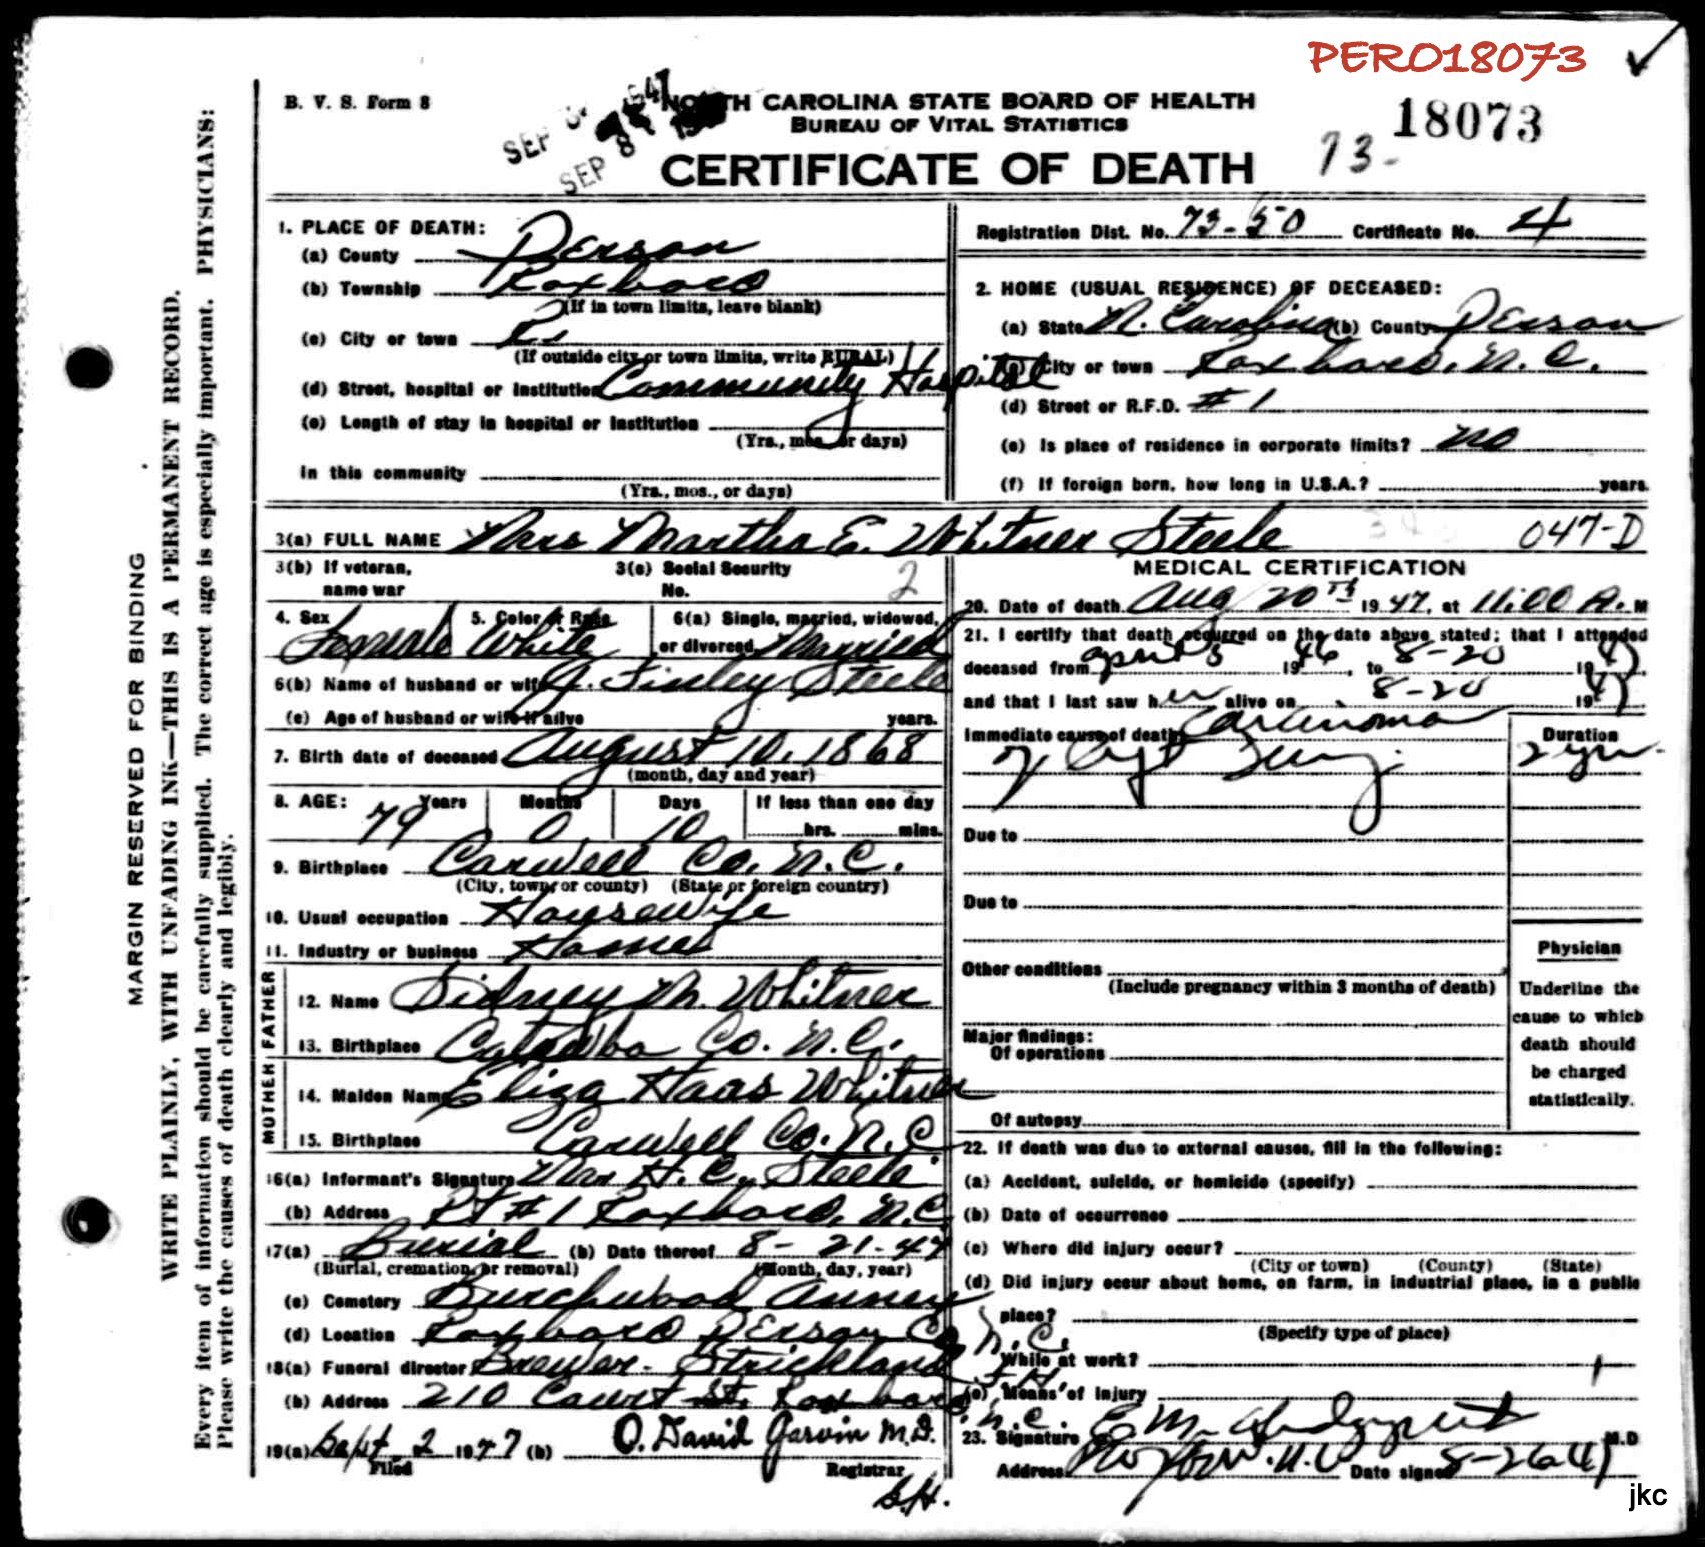 PERO18073
B. V. S. Form 8
SEP 8
NORTH CAROLINA STATE BOARD OF HEALTH
BUREAU OF VITAL STATISTICS
CERTIFICATE OF DEATH
18073
73-
MARGIN RESERVED FOR BINDING
WRITE PLAINLY, WITH UNFADING INK—THIS IS A PERMANENT RECORD.
Every item of information should be carefully supplied. The correct age is especially important. PHYSICIANS:
Please write the causes of death clearly and legibly.
1. PLACE OF DEATH:
(a) County Person
(b) Township Roxboro
(If in town limits, leave blank)
(c) City or town
(If outside city or town limits, write RURAL)
(d) Street, hospital or institution Community Hospital
(e) Length of stay in hospital or institution
(Yrs., mos., or days)
In this community
(Yrs., mos., or days)
Registration Dist. No. 73-50 Certificate No. 4
2. HOME (USUAL RESIDENCE) OF DECEASED:
(a) State N. Carolina (b) County Person
(c) City or town Roxboro, N. C.
(d) Street or R.F.D. # 1
(e) Is place of residence in corporate limits? no
(f) If foreign born, how long in U.S.A.? years.
3(a) FULL NAME Mrs Martha E. Whitner Steele
047-D
3(b) If veteran, name war
3(c) Social Security No.
2
4. Sex Female 5. Color or Race White 6(a) Single, married, widowed, or divorced Married
6(b) Name of husband or wife J. Finley Steele
(c) Age of husband or wife if alive years.
7. Birth date of deceased August 10, 1868
(month, day and year)
8. AGE: Years Months Days If less than one day
79 0 10 hrs. mins.
9. Birthplace Caswell Co. N. C.
(City, town or county) (State or foreign country)
10. Usual occupation Housewife
11. Industry or business Home
FATHER
12. Name Sidney M. Whitner
13. Birthplace Catawba Co. N. C.
MOTHER
14. Maiden Name Eliza Haas Whitner
15. Birthplace Caswell Co. N. C
16(a) Informant's Signature Mrs H. C. Steele
(b) Address Rt # 1 Roxboro, N. C.
17(a) Burial (b) Date thereof 8-21-47
(Burial, cremation, or removal) (Month, day, year)
(c) Cemetery Burchwood Annex
(d) Location Roxboro Person Co, N. C.
18(a) Funeral director Brewer-Strickland F.H.
(b) Address 210 Court St. Roxboro, N. C.
19(a) Sept 2 1947 (b) O. David Garvin M.D.
Filed Registrar
MEDICAL CERTIFICATION
20. Date of death Aug 20th 1947, at 11:00 A. M
21. I certify that death occurred on the date above stated; that I attended
deceased from April 5 1946, to 8-20 1947
and that I last saw her alive on 8-20 1947
Immediate cause of death Carcinoma
Duration
2 yrs.
Due to
Due to
Other conditions
(Include pregnancy within 3 months of death)
Major findings:
Of operations
Of autopsy
Physician
Underline the
cause to which
death should
be charged
statistically.
22. If death was due to external causes, fill in the following:
(a) Accident, suicide, or homicide (specify)
(b) Date of occurrence
(c) Where did injury occur?
(City or town) (County) (State)
(d) Did injury occur about home, on farm, in industrial place, in a public
place?
(Specify type of place)
While at work?
(e) Means of injury
23. Signature M.D
Address Date signed 8-26-47
jkc